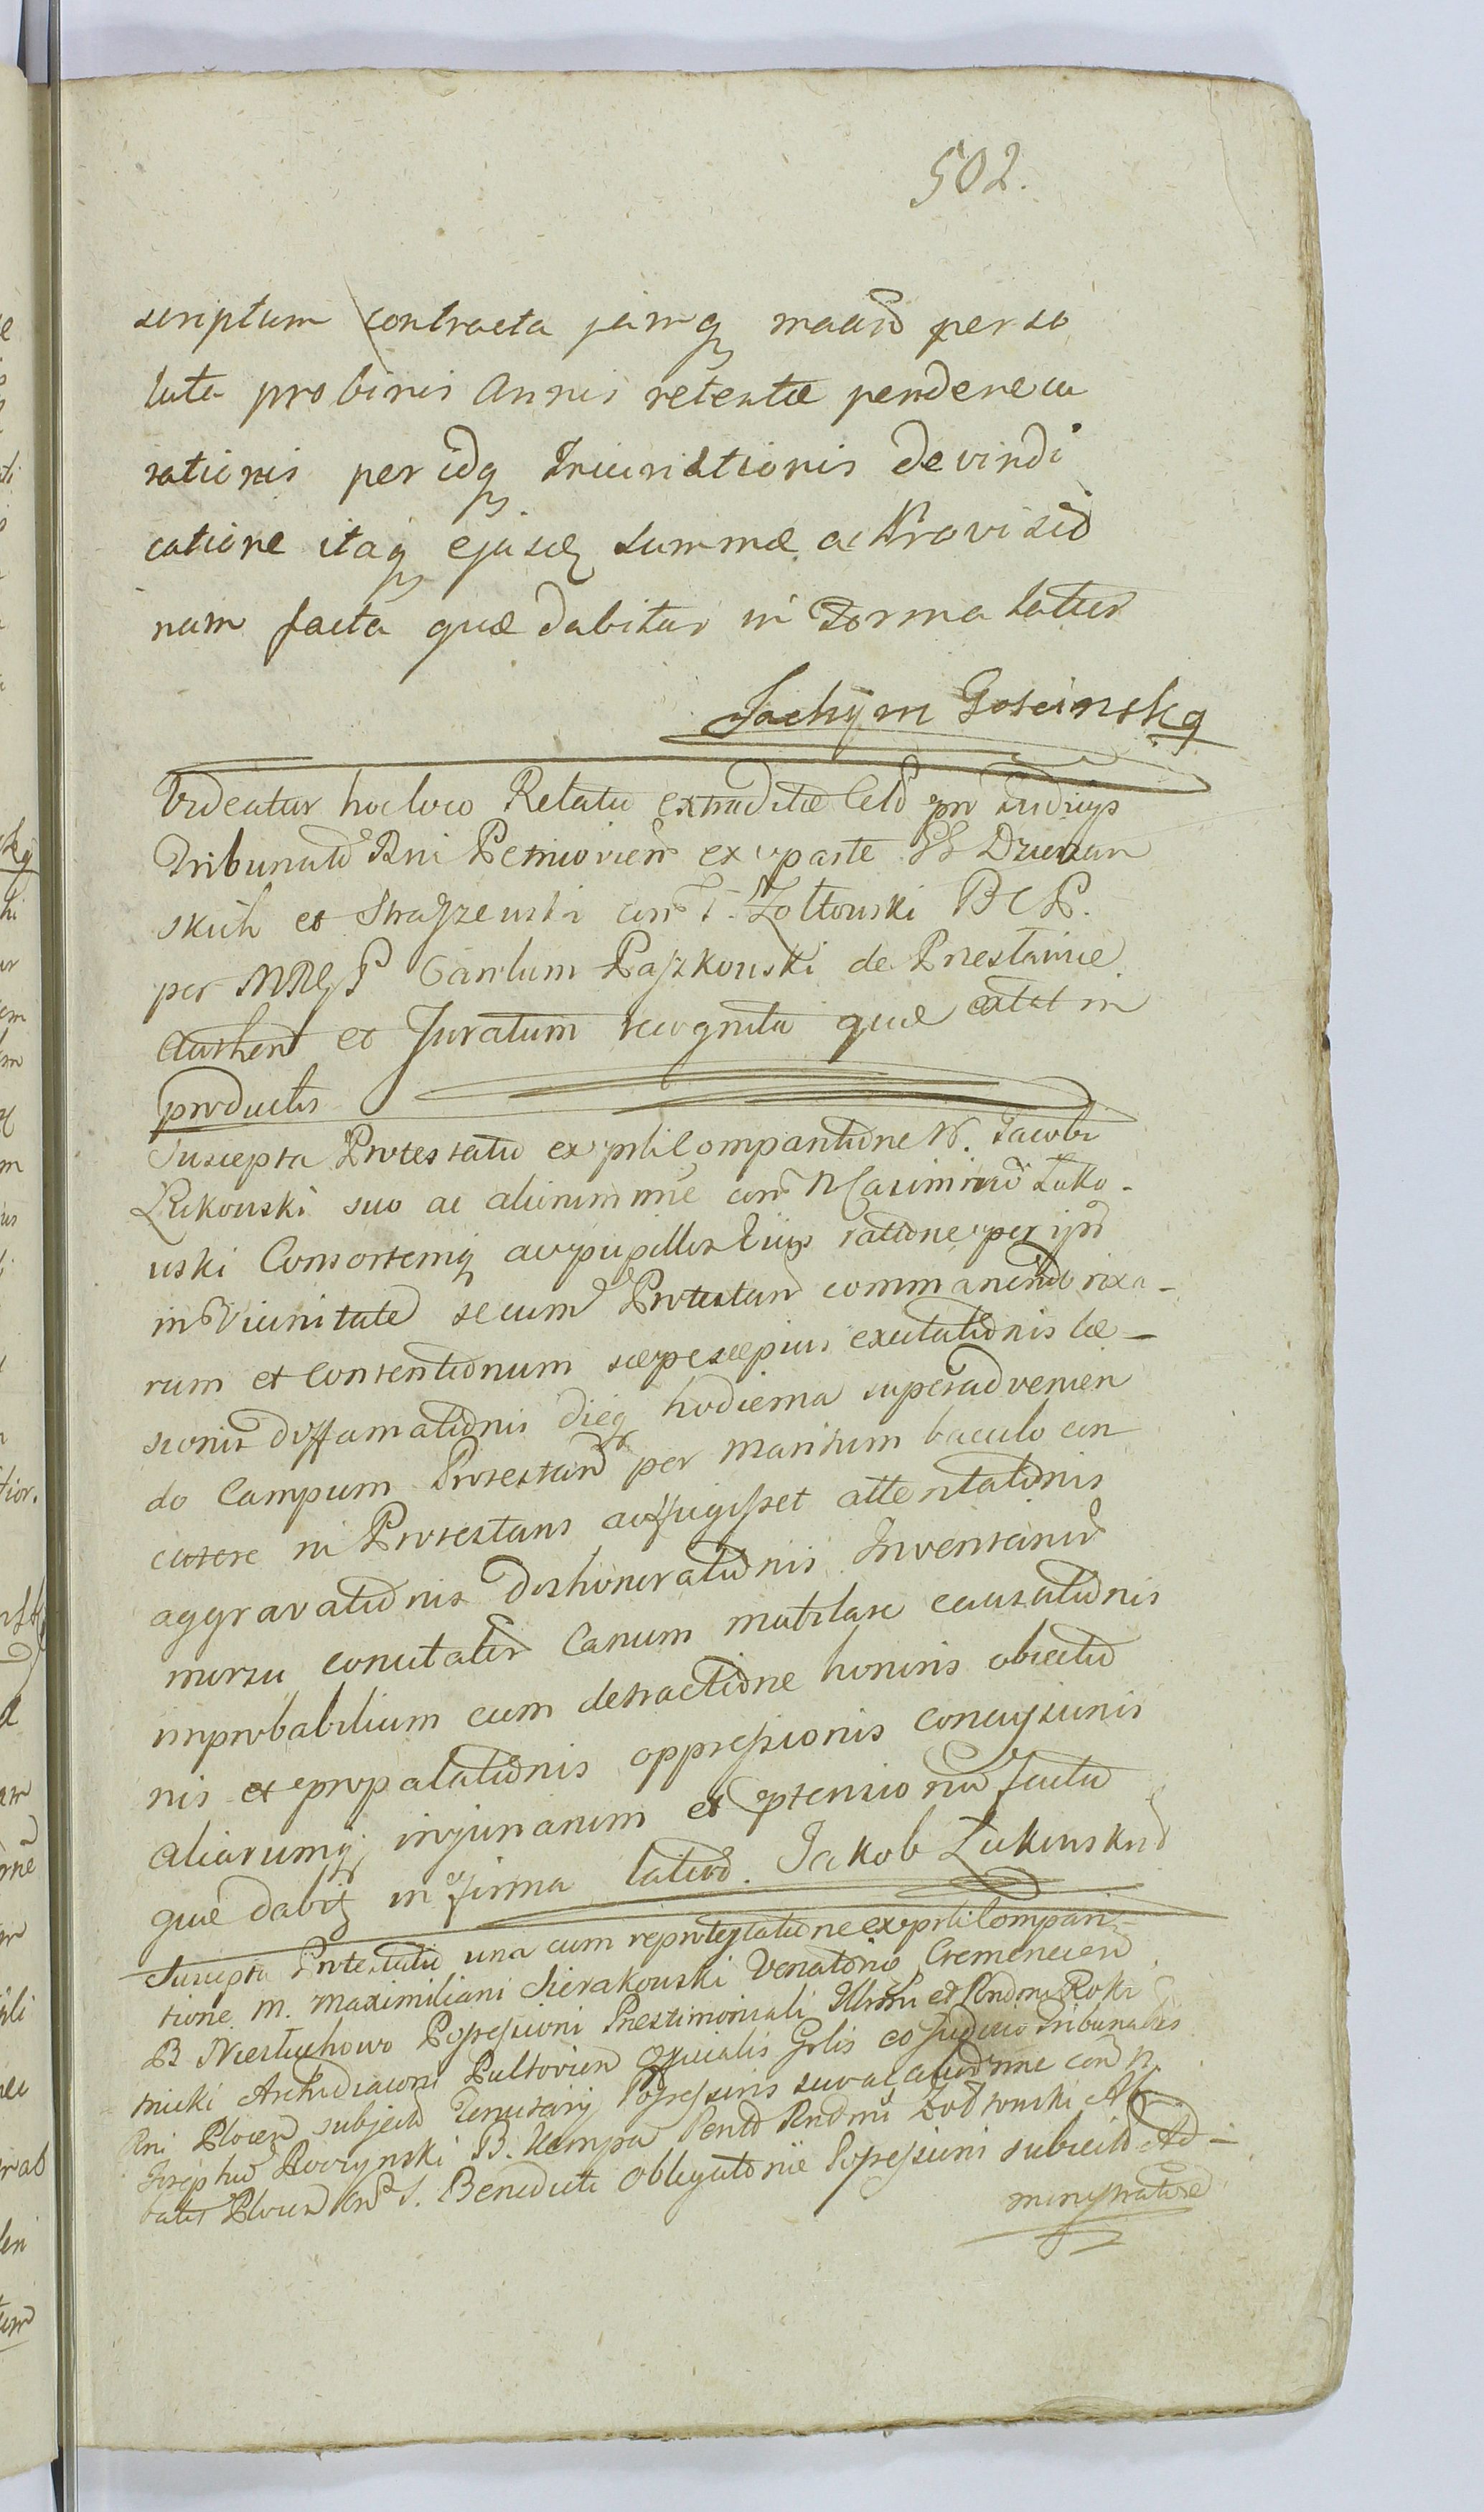 502.
scriptum contracta jamq maari perso
luta probinis Annis retentæ penderecu
rationis per idq Iniuriationis devindi
catione itaq ejusdeq summæ ac Provisio
num facta quæ dabitur in Forma latiori
Jachÿm Goscinskq
Videatur hocloco Relatio extraditæ pri Iudicys
Tribunatu Rni Petricovien ex parte Dzierzan
skich et Straszewski con T. Zoltowski B C P.
per Carolum Paszkowski de Przestawie
Authent et Juratum recognita quæ extat in
productis
Suscepta Protestatio ex prlil Comparitione N. Jacobi
Lukowski suo ac aliorum nnie con N Casimirum Luko-
uski Consortemq ac pupillos Eius ratione per ipso
in Vicinitate secum Protestan commanendo rixa-
rum et Contentionum sæpesæpius excitationis læ-
sionis diffamationis dieq hodierna superadvenien
do Campum Protestan per maritum baculo con
cutere ni Protestans aufugisset attentationis
aggravationis dishonorationis Inventario
morsu concitatis Canum mutilare causationis
improbabilium cum detractione honoris obiectio
nis et propalationis oppressionis concussionis
aliarumq injuriarum et ptensionu factu
quæ dabitq in forma latiori. Jakob Lukowsknd
Suscepta Protestatio una cum reprotestatione ex prlil Compari-
tione M. Maximiliani Sierakowski Venatoris Cremenecien
B Niestuchowo Possessioni Prestimoniali Illrmi et Rndmi Roki
tnicki Archidiaconi Pultovien Officialis Grlis eo Judicio Tribunalis
Rni Plocen subjecto Tenutarij Possessoris suo ac aliorum nnie con N.
Josephum Roczynski B. Kempa Rndmi Zoltowski Ab-
batis Plocen S. Benedicti Obligatoriæ Possessioni subiecto Ad-
ministratore